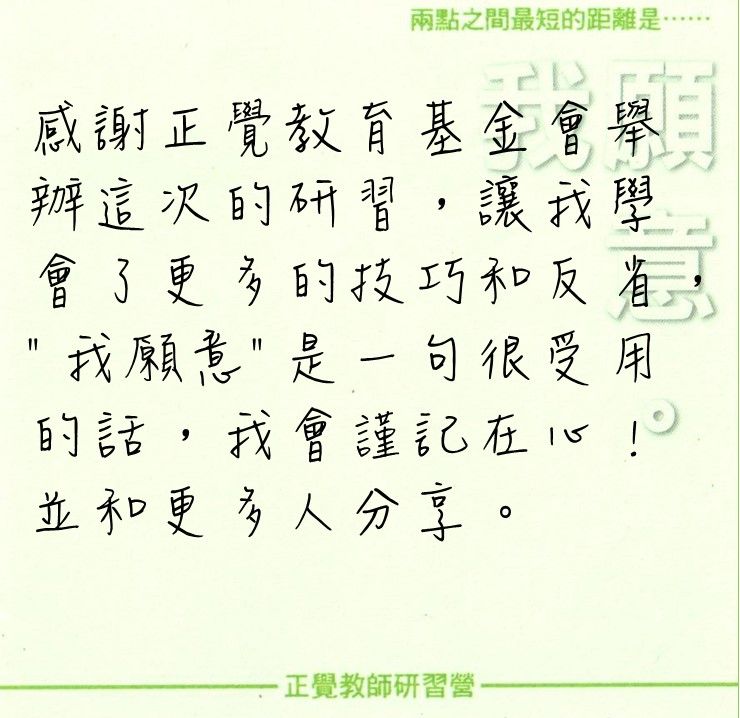 兩點之間最短的距離是⋯⋯
我願意。
感謝正覺教育基金會舉
辦這次的研習，讓我學
會了更多的技巧和反省，
"我願意"是一句很受用
的話，我會謹記在心！
並和更多人分享。
正覺教師研習營